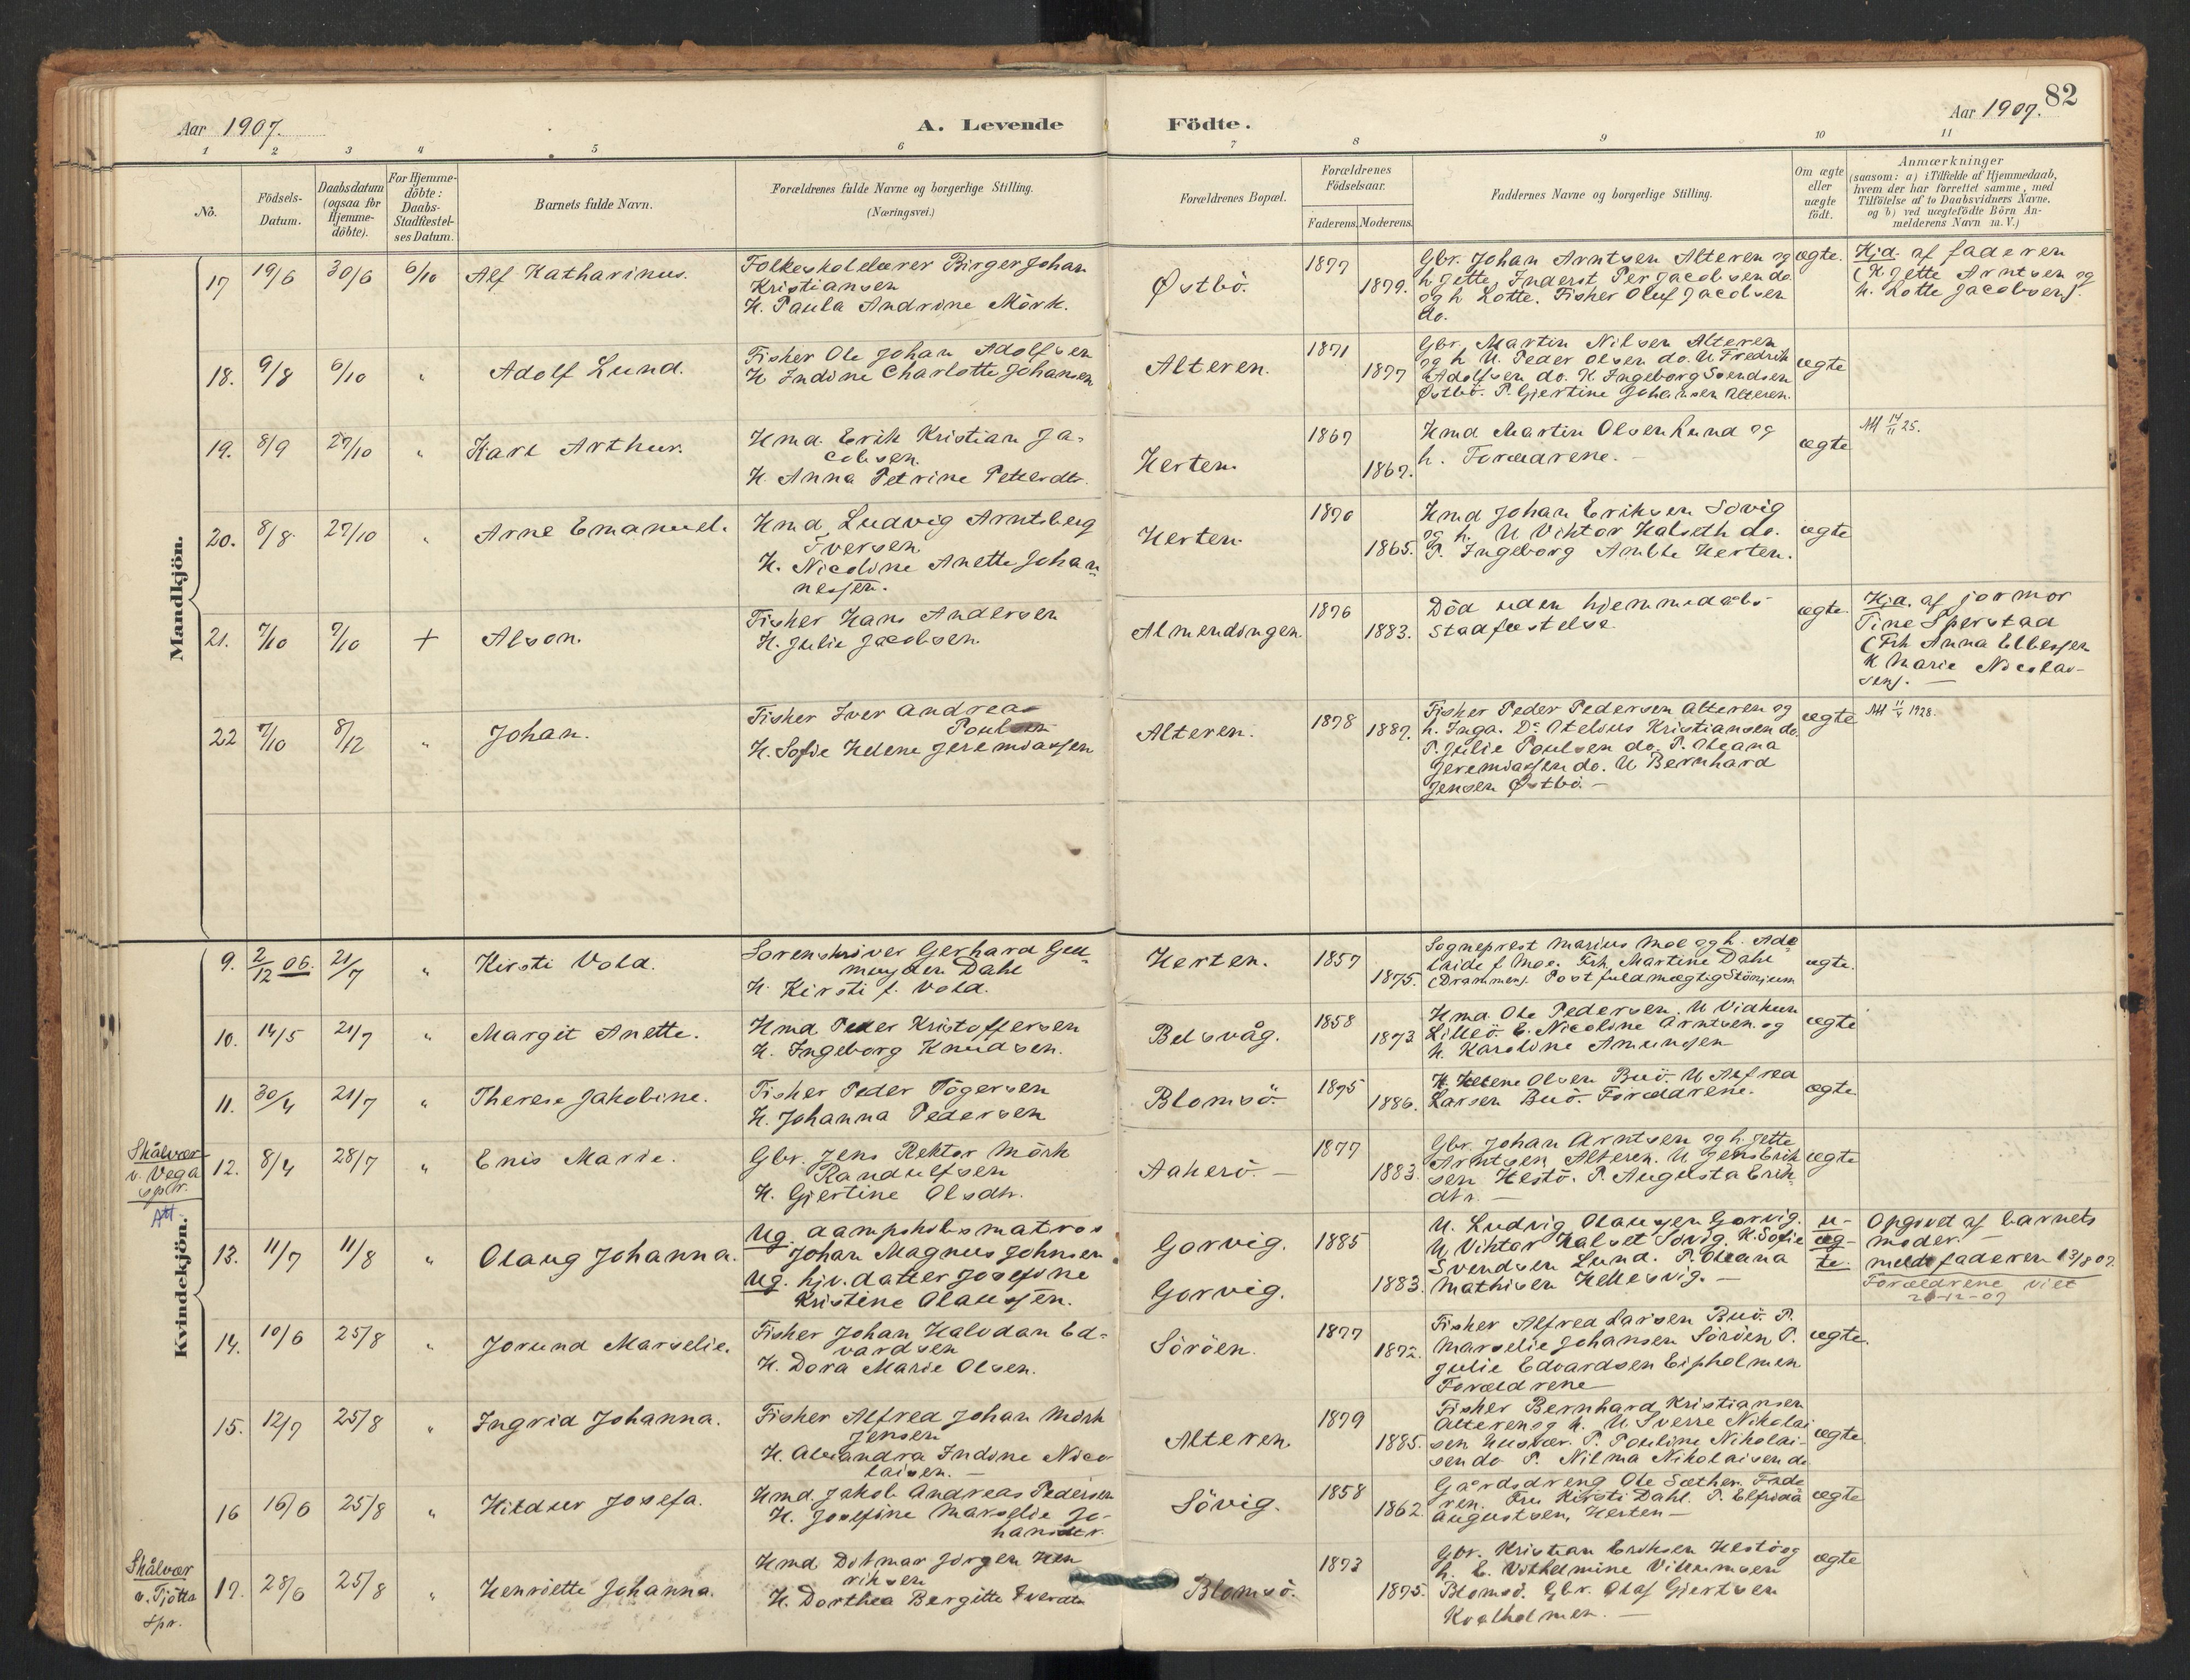 82
Aar 1907.
A. Levende Födte.
Aar 1907.
1 2 3 4 5 6 7 8 9 10 11
No.
Födsels-
Datum.
Daabsdatum
(ogsaa for
Hjemme-
döbte).
For Hjemme-
döbte:
Daabs-
Stadfæstel-
ses Datum.
Barnets fulde Navn.
Forældrenes fulde Navne og borgerlige Stilling.
(Næringsvei.)
Forældrenes Bopæl.
Forældrenes
Födselsaar.
Faderens. Moderens.
Faddernes Navne og borgerlige Stilling.
Om ægte
eller
uægte
födt.
Anmærkninger
(saasom: a) i Tilfælde af Hjemmedaab,
hvem der har forrettet samme, med
Tilföielse af to Daabsvidners Navne.
og b) ved uægtefödte Börn An-
melderens Navn m.V.)
Mandkjön.
17 19/6 30/6 6/10 Alf Katharinus.
Folkeskolelærer Birger Johan
Kristiansen
H. Paula Andrine Mörk.
Østbö.
1877
1879.
Gbr. Johan Arntsen Alteren og
h Jette, Inderst Per Jacobsen do
og h Lotte. Fisker Oluf Jacobsen
do.
ægte.
Hjd. af faderen
(K. Jette Arntsen og
h. Lotte Jacobsen).
18. 9/8 6/10 " Adolf Lund.
Fisker Ole Johan Adolfsen
H Indine Charlotte Johansen
Alteren.
1871
1877
Gbr. Martin Nilsen Alteren
og h U. Peder Olsen do. U Fredrik
Adolfsen do. K. Ingeborg Svendsen
Østbö. P. Gjertine Johansen Alteren.
ægte
19. 8/9 27/10 " Karl Arthur.
Hmd. Erik Kristian Ja-
cobsen.
H. Anna Petrine Petersdtr.
Herten.
1867
1867.
Hmd Martin Olsen Lund og
h. Forældrene. -
ægte
Att 14/11 25.
20. 8/8 27/10 " Arne Emanuel.
Hmd. Ludvig Arntsberg
Iversen.
H. Nicoline Anette Johan-
nessen.
Herten.
1870
1865.
Hmd Johan Eriksen Sövig
og h. U Viktor Halseth do.
P. Ingeborg Amble Herten.
ægte
21. 7/10 7/10 + Alson.
Fisker Hans Andersen
H. Julie Jacobsen.
Almendingen.
1876
1883.
Död uden hjemmedåbs-
stadfæstelse
ægte.
Hjd. af jormor
Tine Sperstad
(Frk Anna Ellessen
K Marie Nicolai-
sen). -
22 7/10 8/12 " Johan.
Fisker Iver Andreas
Poulsen
H. Sofie Helene Jeremiassen
Alteren.
1878
1887.
Fisker Peder Pedersen Alteren og
h. Inga. D° Otelius Kristiansen do.
P. Julie Poulsen do. P. Oleana
Jeremiassen do. U Bernhard
Jensen Østbö. -
ægte
Att 11/4 1928.
Kvindekjön.
9. 2/12 06. 21/7 " Kirsti Vold.
Sorenskriver Gerhard Gul-
Dahl
H. Kirsti f. Vold.
Herten.
1857
1875.
Sogneprest Marius Moe og h. Ade-
laide f Moe. Frk. Martine Dahl
(Drammen). Postfuldmægtig
ægte.
10. 14/5 21/7 " Margit Anette.
Hmd Peder Kristoffersen
H. Ingeborg Knudsen.
Belsvåg.
1858
1873
Hmd. Ole Pedersen. U Vidkun
Lilleö. E. Nicoline Arntsen og
h. Karoline Amundsen
ægte
11. 30/4 21/7 " Therese Jakobine.
Fisker Peder Tögersen
H. Johanna Pedersen
Blomsö.
1875
1886.
K. Helene Olsen Buö. U Alfred
Larsen Buö. Forældrene.
ægte.
Skålvær
v. Vega
spr.
Att
12. 8/4 28/7 " Enis Marie.
Gbr. Jens Rektor Mörk
Randulfsen
H. Gjertine Olsdtr.
Aakerö. -
1877
1883.
Gbr. Johan Arntsen og h. Jette
Arntsen Alteren. U Jens Erik-
sen Hestö. P. Augusta Erik-
dtr. -
ægte
13. 11/7 11/8 " Olaug Johanna.
Ug. dampskibsmatros
Johan Magnus Johnsen
Ug. hjv. datter Josefine
Kristine Olaussen.
Gorvig.
Gorvig.
1885
1883.
U. Ludvig Olaussen Gorvig.
U. Viktor Halset Sövig. K. Sofie
Svendsen Lund. P. Oleana
Mathisen Hellesvig. -
u-
æg-
te.
Opgivet af barnets
moder. -
meldt faderen 13/8 07.
Forældrene viet
26-12-07
14. 10/6 25/8 " Jorund Marselie.
Fisker Johan Halvdan Ed-
vardsen
H. Dora Marie Olsen.
Söröen.
1877
1872.
Fisker Alfred Larsen Buö. P.
Marselie Johansen Söröen P.
Julie Edvardsen Eipholmen
Forældrene
ægte.
15. 12/7 25/8 " Ingrid Johanna.
Fisker Alfred Johan Mörk
Jensen
H. Alexandra Indine Nico-
laisen. -
Alteren
1879
1885.
Fisker Bernhard Kristiansen
Alteren og h. U Sverre Nikolai-
sen Husvær. P. Pouline Nikolai-
sen do P. Nilma Nikolaisen do
ægte
16 16/6 25/8 " Hildur Josefa.
Hmd Jakob Andreas Pedersen
H. Josefine Marselie Jo-
hansdtr.
Sövig.
1858
1862.
Gårdsdreng Ole Sæther. Fade-
ren. Fru Kirsti Dahl. P. Elfrida
Augustsen, Herten -
ægte
Skålvær
v. Tjötta
spr.
17. 28/6 25/8 " Henriette Johanna.
Hmd Ditmar Jörgen Hen-
riksen
H. Dorthea Bergitte Iversdtr
Blomsö.
1873
1875.
Gbr. Kristian Eriksen Hestö og
h. E. Vilhelmine Villumsen
Blomsö. Gbr. Olaf Gjertsen
Kvalholmen. -
ægte